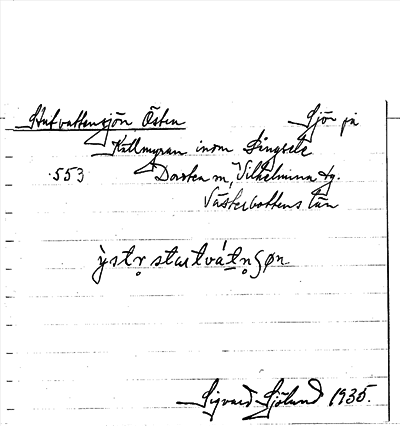 Starvattensjön Östen Sjön på
Kittmyran inom Dingsele
553 Dorotea sn, Vilhelmina tg.
Västerbottens län
ỳstr̥ starvátn̥ʂøn
Sigvard Sjölund 1935.